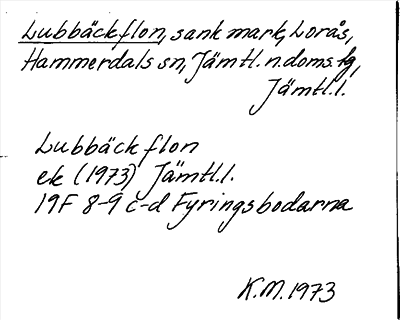 Lubbäckflon, sank mark, Lorås,
Hammerdals sn, Jämtl. n. doms. tg,
Jämtl. l.
Lubbäckflon
ek (1973) Jämtl. l.
19F 8-9 c-d Fyringsbodarna
K.M. 1973